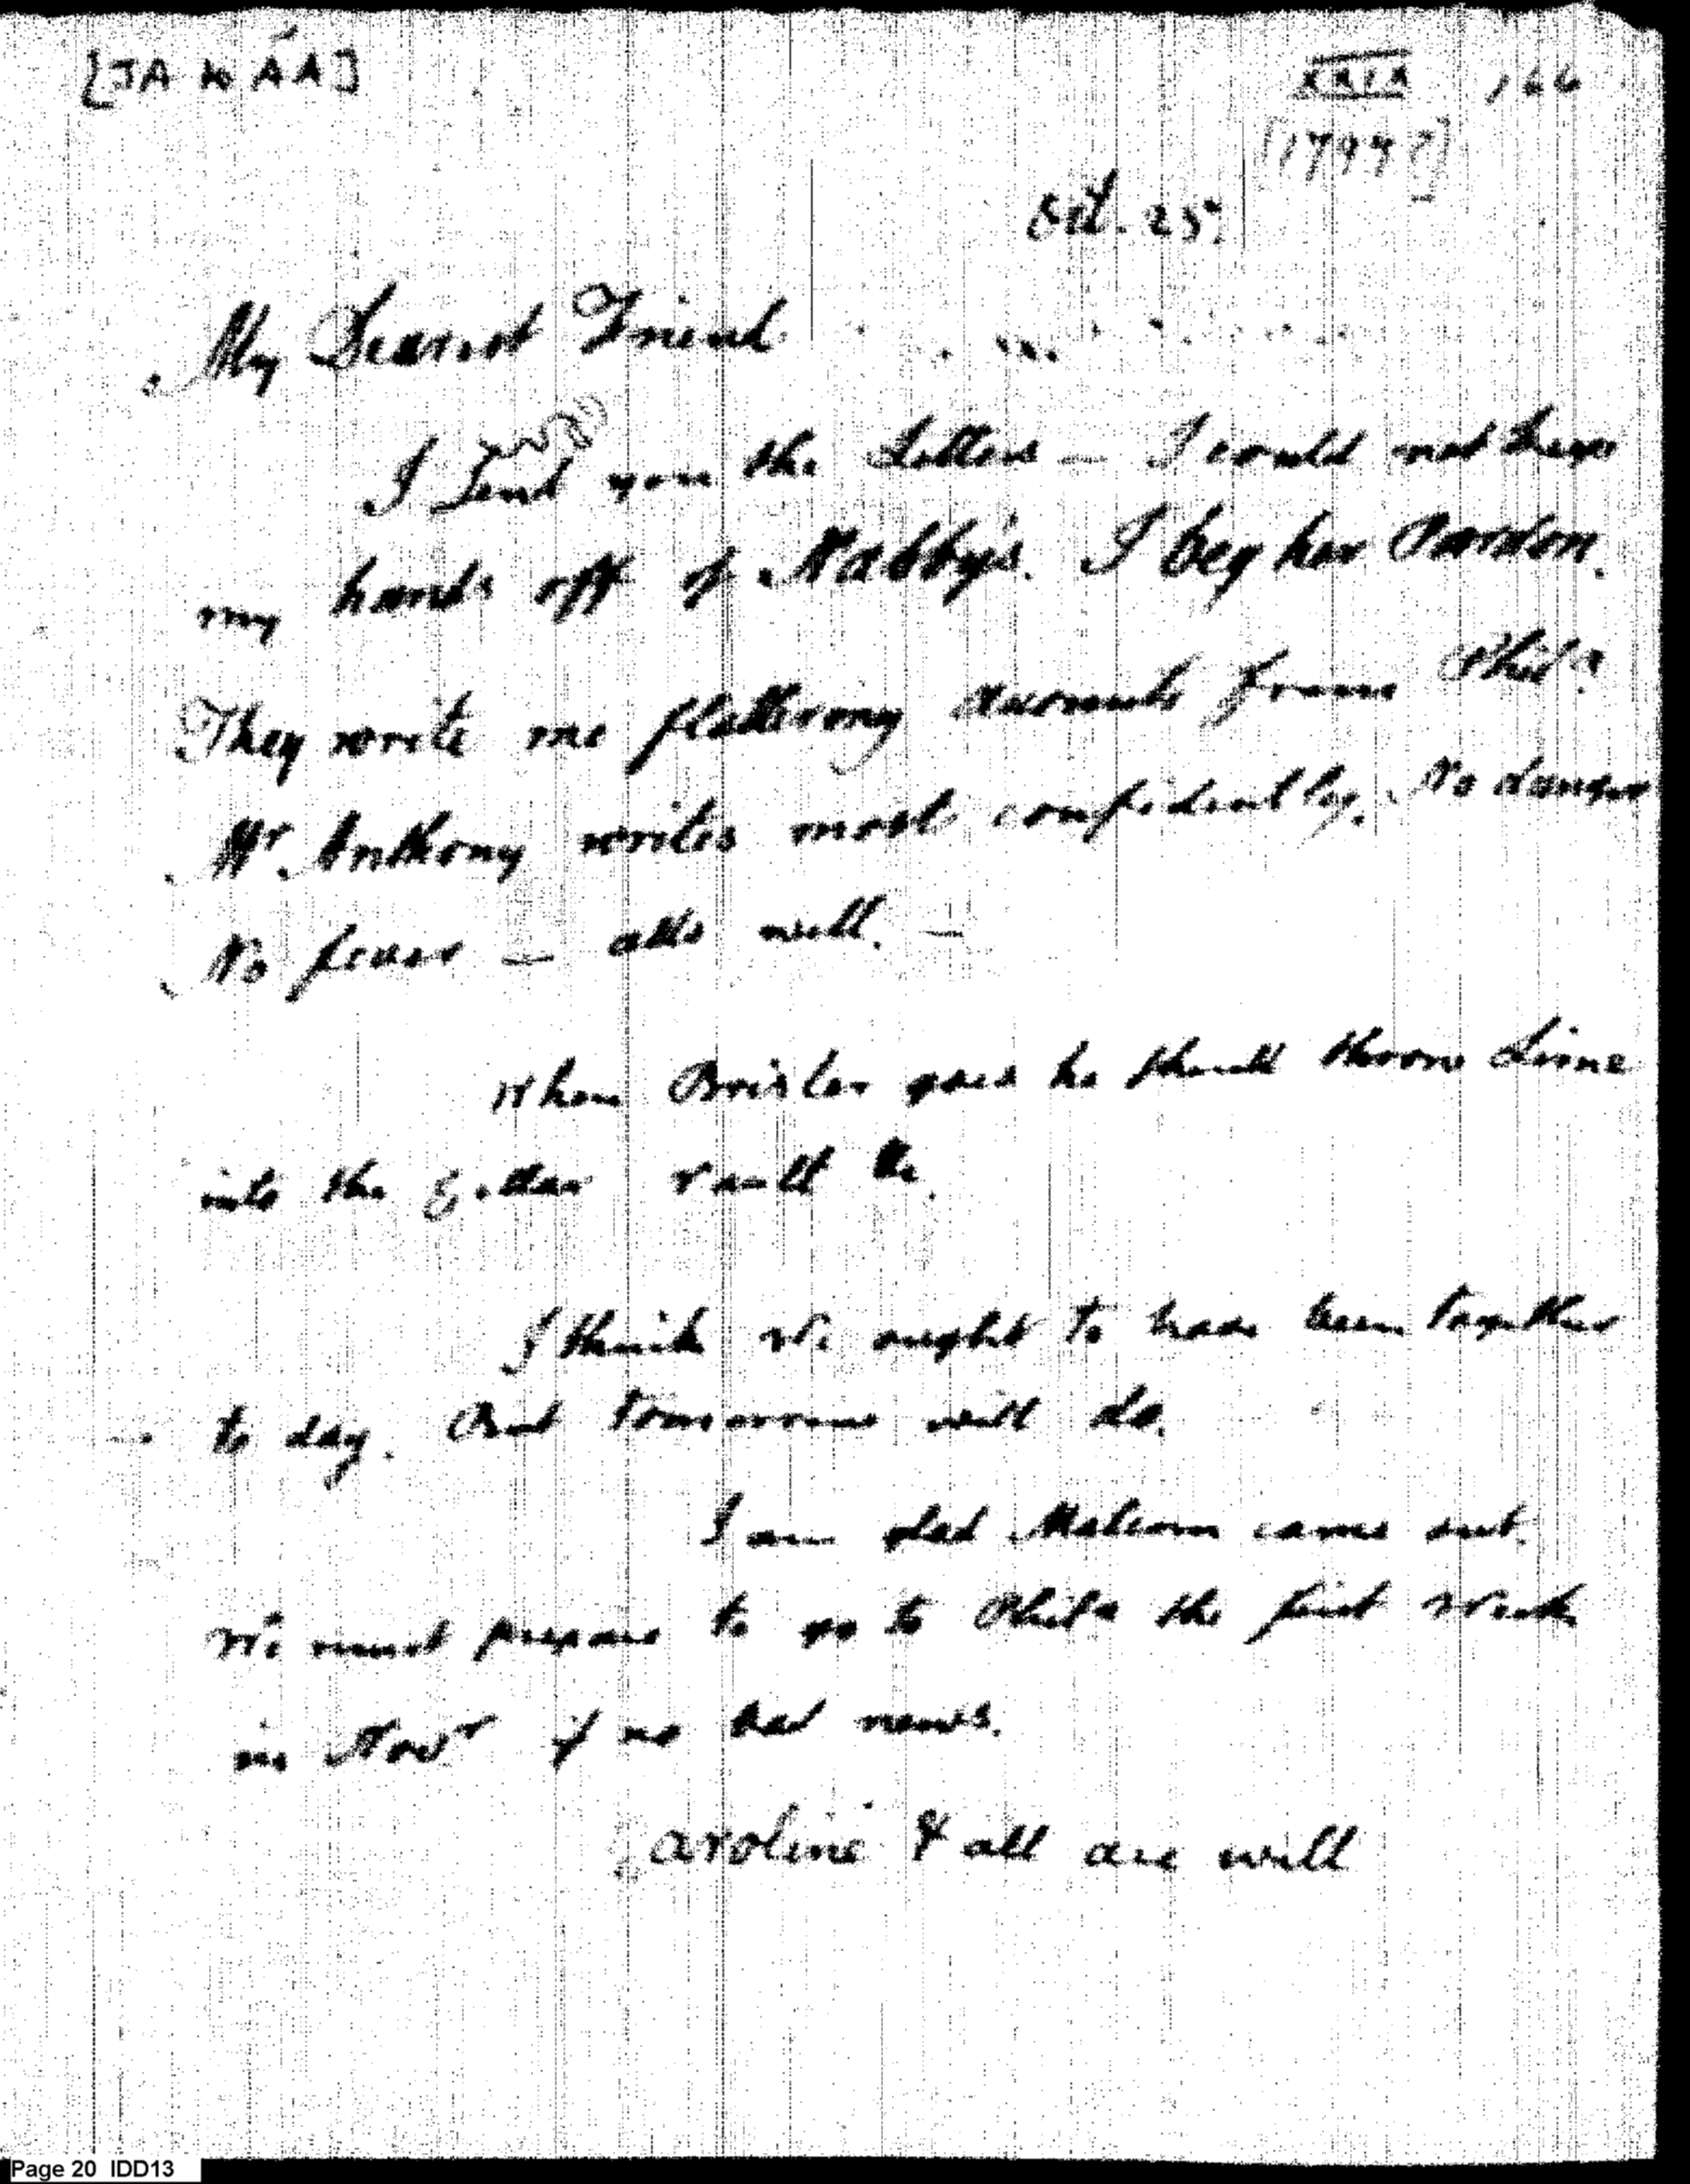 [JA to AA]
XXIX 166
[1797?]
Oct. 25.
My Dearest Friend
I Send you the Letters — I could not keep
my hands off of Nabby's. I beg her Pardon.
They write me flattering accounts from Phila
Mr Anthony writes most confidently. No danger
No fever — alls well. —
When Brisler goes he should throw Lime
into the Cellar Vault &c.
I think We ought to have been together
to day. But tomorrow will do.
I am glad Malcom came out.
We must prepare to go to Phila the first Week
in Novr if no bad news.
Caroline & all are well
Page 20 IDD13